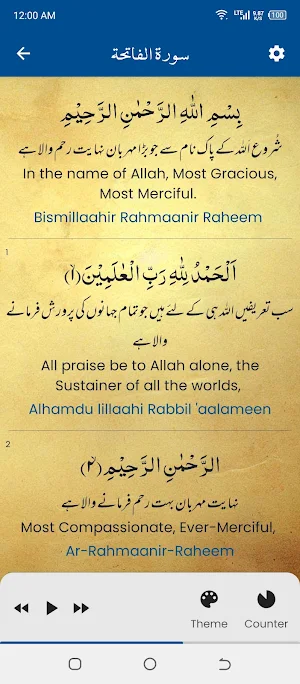 12:00 AM
LTE 9.87 K/S 100
سورة الفاتحة
بِسْمِ اللّٰهِ الرَّحْمٰنِ الرَّحِيْمِ
شروع اللہ کے پاک نام سے جو بڑا مہربان نہایت رحم والا ہے
In the name of Allah, Most Gracious,
Most Merciful.
Bismillaahir Rahmaanir Raheem
1
اَلْحَمْدُ لِلّٰهِ رَبِّ الْعٰلَمِيْنَ(۱)
سب تعریفیں اللہ ہی کے لئے ہیں جو تمام جہانوں کی پرورش فرمانے
والا ہے
All praise be to Allah alone, the
Sustainer of all the worlds,
Alhamdu lillaahi Rabbil 'aalameen
2
الرَّحْمٰنِ الرَّحِيْمِ(۲)
نہایت مہربان بہت رحم فرمانے والا ہے
Most Compassionate, Ever-Merciful,
Ar-Rahmaanir-Raheem
Theme
Counter